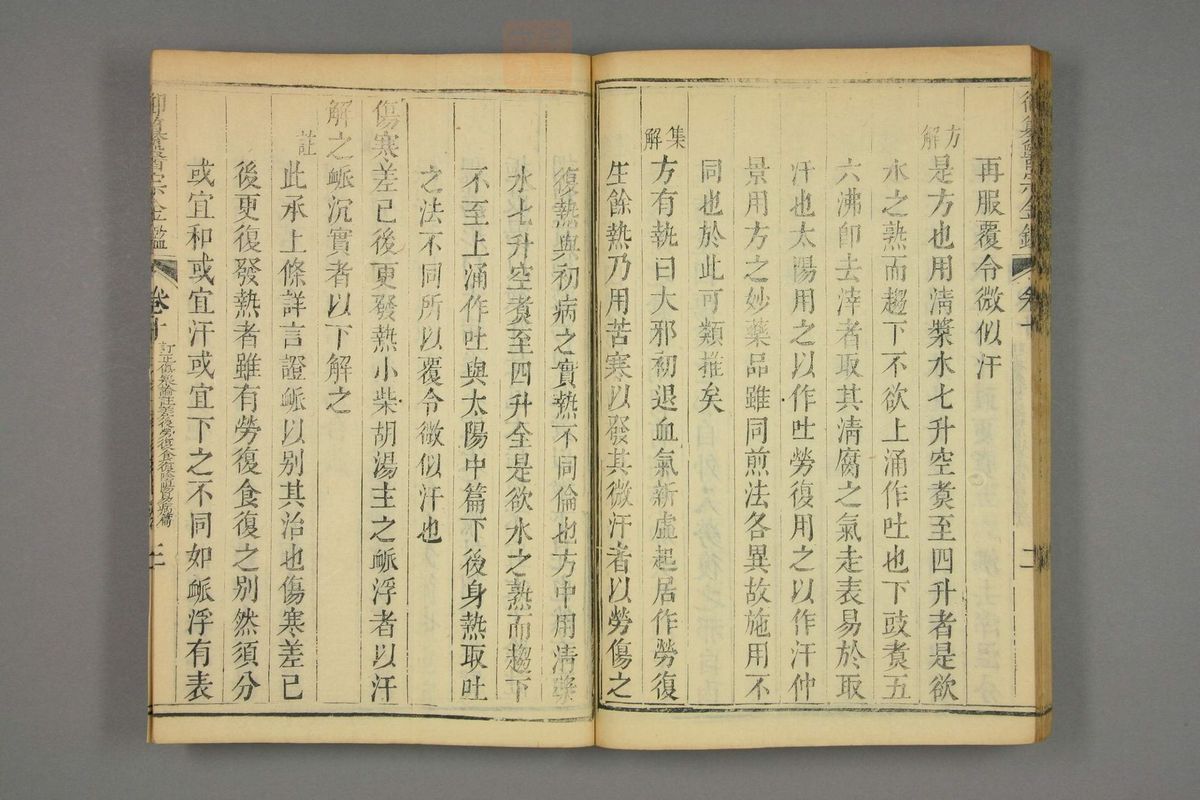 再服覆令微似汗
方解
是方也用清漿水七升空煑至四升者是欲
水之熟而趨下不欲上涌作吐也下豉煑五
六沸卽去滓者取其清腐之氣走表易於取
汗也太陽用之以作吐勞復用之以作汗仲
景用方之妙藥品雖同煎法各異故施用不
同也於此可類推矣
集解
方有執曰大邪初退血氣新虛起居作勞復
生餘熱乃用苦寒以發其微汗者以勞傷之
復熱與初病之實熱不同倫也方中用清漿
水七升空煑至四升全是欲水之熟而趨下
不至上涌作吐與太陽中篇下後身熱取吐
之法不同所以覆令微似汗也
傷寒差已後更發熱小柴胡湯主之脈浮者以汗
解之脈沉實者以下解之
註
此承上條詳言證脈以别其治也傷寒差已
後更復發熱者雖有勞復食復之别然須分
或宜和或宜汗或宜下之不同如脈浮有表
御纂醫宗金鑑
卷十
訂正傷寒論註差後勞復食復陰陽易病篇